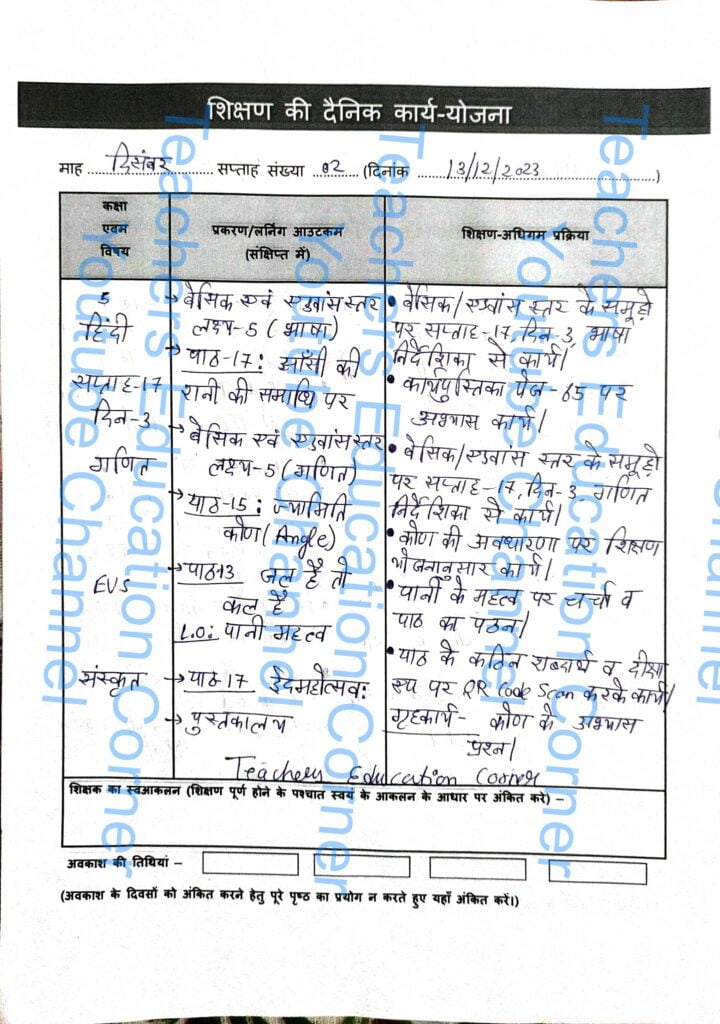 शिक्षण की दैनिक कार्य-योजना
माह दिसंबर सप्ताह संख्या 02 (दिनांक 13/12/2023)
कक्षा
एवम
विषय
प्रकरण/लर्निग आउटकम
(संक्षिप्त में)
शिक्षण-अधिगम प्रक्रिया
5
हिंदी
सप्ताह-17
दिन-3
गणित
EVS
संस्कृत
→ बेसिक एवं एडवांस स्तर
लक्ष्य-5 (भाषा)
→ पाठ-17: झाँसी की
रानी की समाधि पर
→ बेसिक एवं एडवांस स्तर
लक्ष्य-5 (गणित)
→ पाठ-15: ज्यामिति
कोण (Angle)
→ पाठ-13 जल है तो
कल है
L.O: पानी महत्व
→ पाठ 17 ईदमहोत्सव:
→ पुस्तकालय
• बेसिक/एडवांस स्तर के समूहो
पर सप्ताह-17, दिन-3, भाषा
निर्देशिका से कार्य।
• कार्यपुस्तिका पेज-65 पर
अभ्यास कार्य।
• बेसिक/एडवांस स्तर के समूहो
पर सप्ताह-17, दिन-3, गणित
निर्देशिका से कार्य।
• कोण की अवधारणा पर शिक्षण
योजनानुसार कार्य।
• पानी के महत्व पर चर्चा व
पाठ का पठन।
• पाठ के कठिन शब्दार्थ व दीक्षा
एप पर QR Code Scan करके कार्य।
गृहकार्य- कोण के अभ्यास
प्रश्न।
Teachers Education Corner
शिक्षक का स्वआकलन (शिक्षण पूर्ण होने के पश्चात स्वयं के आकलन के आधार पर अंकित करे) –
अवकाश की तिथियां –
(अवकाश के दिवसों को अंकित करने हेतु पूरे पृष्ठ का प्रयोग न करते हुए यहाँ अंकित करें।)
Teachers Education Corner
Youtube Channel
Teachers Education Corner
Youtube Channel
Teachers Education Corner
Youtube Channel